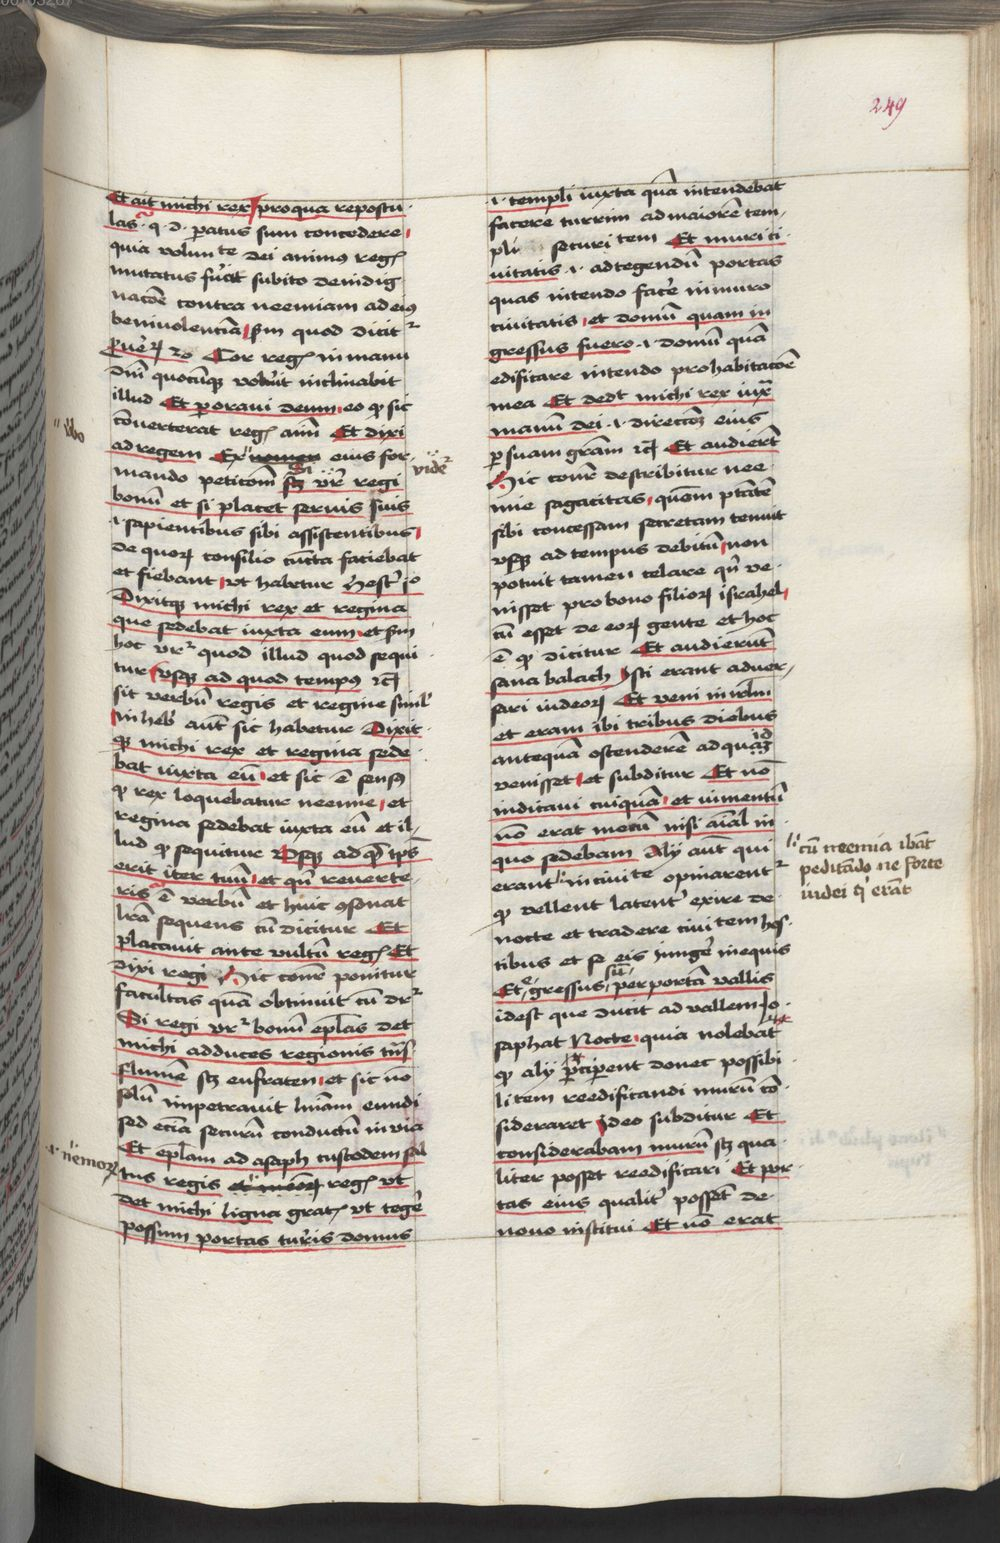 249
Et ait michi rex pro qua re postu
las · q · d · ꝑatus sum concedere
quia volunte dei animꝰ regꝭ
mutatus fuit subito de indig
nacōe contra neemiam ad eiꝰ
benivolenciā sm quod dicit᷑
ꝓuerꝭ 20 Cor regꝭ in manu
dni quocūqꝫ voluit inclinabit
illud Et ꝑoraui deum eo qꝫ sic
cōuerterat regꝭ aīm Et dixi
ad regem eius for
mando peticoēm scꝫ vr̄ regi
bonū et si placet servis suis
·i· sapientibus sibi assistentibus
de quoꝝ consilio cūcta faciebat
et fiebant vt habetur hestʳ pᵒ
Dixitqꝫ michi rex et regina
que sedebat iuxta eum et sm
hoc vr̄ quod illud quod sequi
tur vsqꝫ ad quod tempꝰ rc̄
sit verbū regis et regine simlʳ
in hebʳ aut̄ sic habetur Dixit
qꝫ michi rex et regina sede
bat iuxta eū et sic ē sensꝰ
qꝫ rex loquebatur neemie et
regina sedebat iuxta eū et il
lud qꝫ sequitur vsqꝫ ad qd̄ tp̄s
erit iter tuū et qn̄ reuerte
ris ē verbū et huic ꝯsonat
lrā sequens cū dicitur Et
placuit ante vultū regꝭ Et
dixi regi Hic conr̄ ponitur
facultas quā obtinuit cū dr̄
Si regi vr̄ bonū eplās det
michi ad duces regionis trās
flumē scꝫ eufraten et sic nō
solū impetrauit lniam eundi
sed eciā securū conductū in via
Et eplam ad asaph custodem sal
tus regis regꝭ vt
det michi ligna gratꝭ vt tegē
possum portas turis domus
vide᷑
·i· nemoꝝ
·i· templi iuxta quā intendebat
facere turrim ad maiorē tem
pli securitem Et muri ci
uitatis ·i· ad tegendū portas
quas intendo facē in muro
ciuitatis et domū quam in
gressus fuero ·i· domū quā
edificare intendo pro habitacoē
mea Et dedᵗ michi rex iux̄
manū dei ·i· directōꝫ eius
ꝑ suam grām rc̄ Et audierūt
Hic conr̄ describitur nee
mie sagacitas quom ptātē
sibi concessam secretam tenuit
vsqꝫ ad tempus debitū non
potuit tamen celare qn̄ ve
nisset pro bono filioꝝ israhel
cū esset de eoꝝ gente et hoc
ē qꝫ dicitur Et audierūt
sana balach Isti erant aduer
sari iudeoꝝ Et veni in ierlm
et eram ibi tribus diebus
antequā ostenderē ad quid
venisset et subditur Et nō
indicaui cuiquā et iumentū
nō erat mecū nisi aīal in
quo sedebam Alij aut̄ qui
erant in ciuite opinarent᷑
qꝫ vellent latentʳ exire de
nocte et tradere ciuitem hos
tibus et se eis iungē inequis
Et egressus sū per portā vallis
idest que ducit ad vallem Jo
saphat Nocte quia nolebat
qꝫ alij ꝑciperent donec possibi
litem reedificandi murū cō
sideraret ideo subditur Et
considerabam murū scꝫ qua
liter posset reedificari Et por
tas eius qualitʳ possēt de
nouo institui Et nō erat
cū neemia ibāt
peditādo ne forte
iudei qⁱ erāt